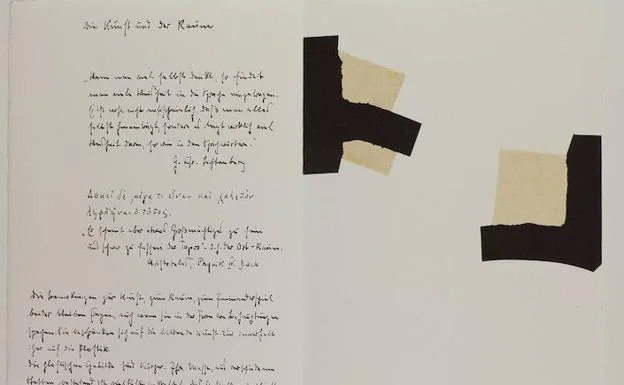 Die Kunst und der Raum
„Wenn man viel selbst denkt, so findet
man viele Weisheit in die Sprache eingetragen.
Es ist wohl nicht wahrscheinlich, daß man alles
selbst hineinträgt, sondern es liegt wirklich viel
Weisheit darin, so wie in den Sprichwörtern.“
G. Chr. Lichtenberg
Δοκεῖ δὲ μέγα τι εἶναι καὶ χαλεπὸν
ληφθῆναι ὁ τόπος.
„Es scheint aber etwas Großmächtiges zu sein
und schwer zu fassen der Topos“ – d.h. der Ort-Raum.
Aristoteles, Physik IV. Buch
Die Bemerkungen zur Kunst, zum Raum, zum Ineinanderspiel
beider bleiben Fragen, auch wenn sie in der Form von Behauptungen
sprechen. Sie beschränken sich auf die bildende Kunst und innerhalb
ihrer auf die Plastik.
Die plastischen Gebilde sind Körper. Ihre Masse, aus verschiedenen